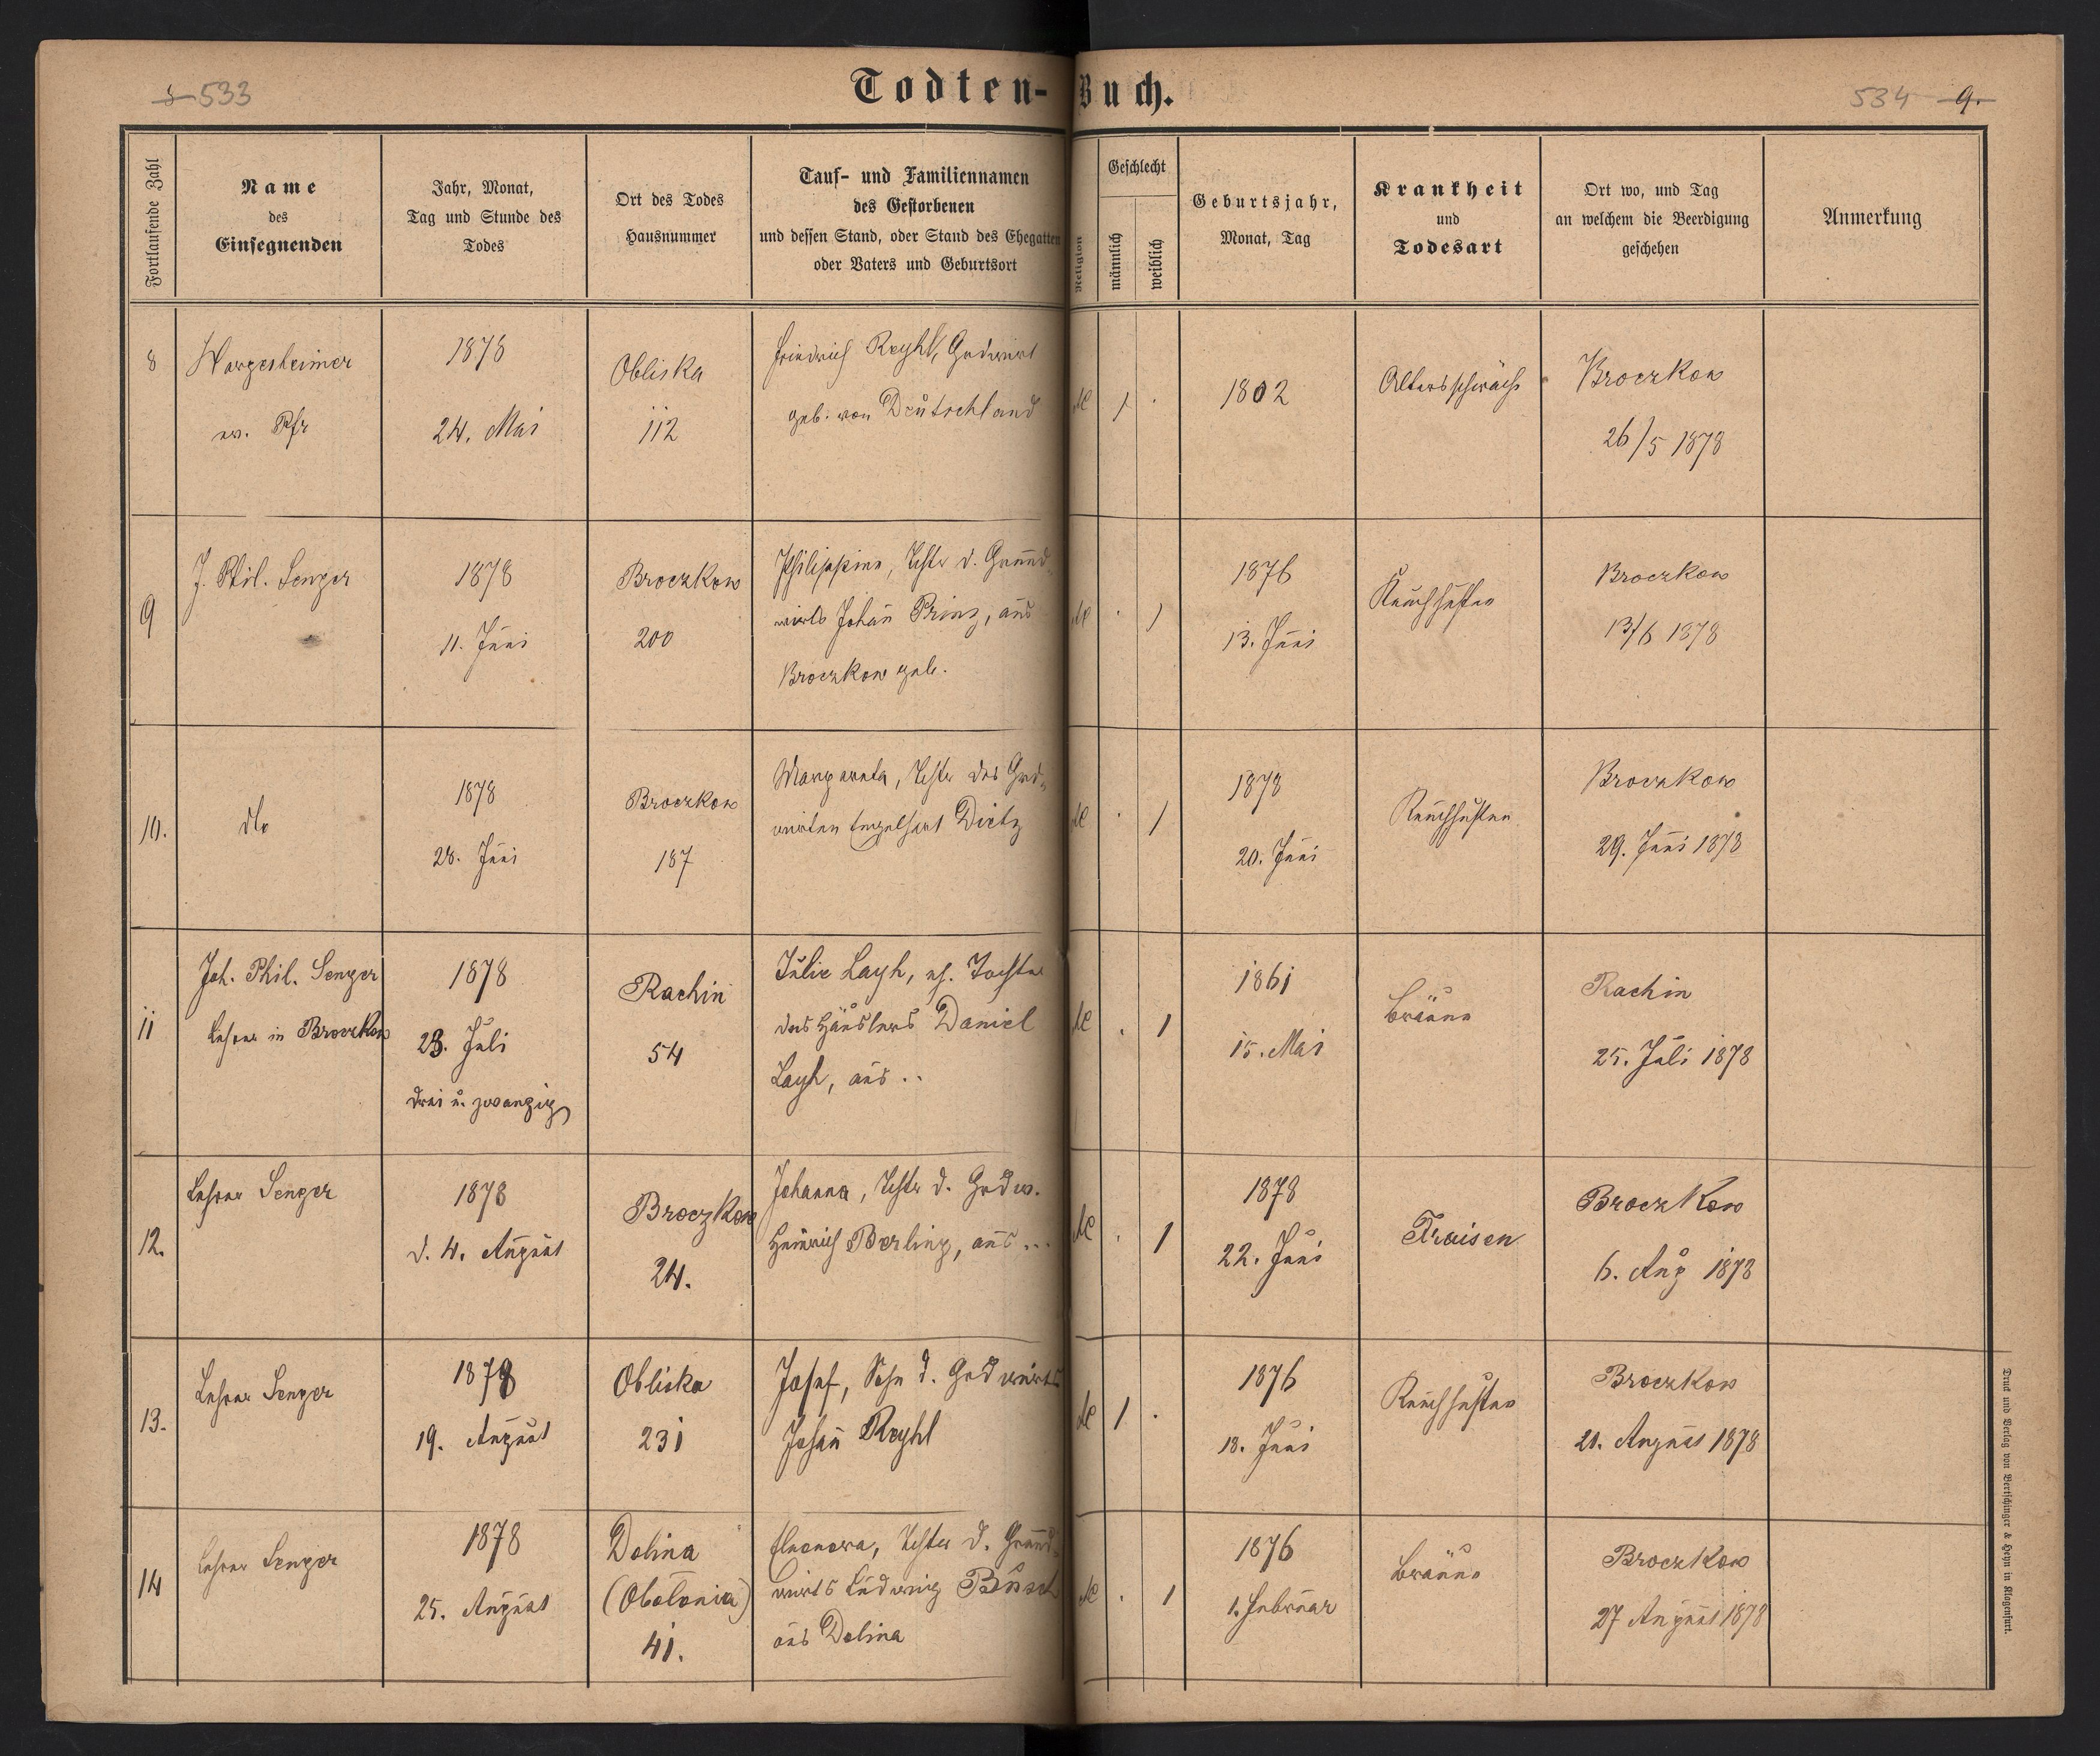 533
Todten-Buch.
534 9.
Fortlaufende Zahl
Name
des
Einsegnenden
Jahr, Monat,
Tag und Stunde des
Todes
Ort des Todes
Hausnummer
Tauf- und Familiennamen
des Gestorbenen
und dessen Stand, oder Stand des Ehegatten
oder Vaters und Geburtsort
Religion
Geschlecht
männlich
weiblich
Geburtsjahr,
Monat, Tag
Krankheit
und
Todesart
Ort wo, und Tag
an welchem die Beerdigung
geschehen
Anmerkung
8
Hargesheimer
ev. Pfr
1878
24. Mai
Obliska
112
Friedrich Reyhl, Grdwirt
geb. von Deutschland
1
.
1802
Altersschwäche
Broczkow
26/5 1878
9
J. Phil. Senger
1878
11. Juni
Broczkow
200
Philippine, Tchtr d. Grund-
wirts Johañ Prinz, aus
Broczkow geb.
.
1
1876
13. Juni
Keuchhusten
Broczkow
13/6 1878
10.
dto
1878
28. Juni
Broczkow
187
Margareta, Tchtr des Grd-
wirten Engelhart Dietz
.
1
1878
20. Juni
Keuchhusten
Broczkow
29. Juni 1878
11
Joh. Phil. Senger
Lehrer in Broczkow
1878
23. Juli
drei u. zwanzig
Rachin
54
Julie Layh, eh. Tochter
des Häuslers Daniel
Layh, aus ..
.
1
1861
15. Mai
Bräune
Rachin
25. Juli 1878
12.
Lehrer Senger
1878
d. 4. August
Broczkow
24.
Johanna, Tchtr d. Grdw.
Heinrich Berling, aus ...
.
1
1878
22. Juni
Fraisen
Broczkow
6. Aug 1878
13.
Lehrer Senger
1878
19. August
Obliska
231
Josef, Sohn d. Grdwirts
Johañ Reyhl
1
.
1876
18. Juni
Keuchhusten
Broczkow
21. August 1878
14
Lehrer Senger
1878
25. August
Dolina
(Obolonia)
41.
Eleonora, Tchter d. Grund-
wirts Ludwig Busch
aus Dolina
.
1
1876
1. Februar
Bräune
Broczkow
27 August 1878
Druck und Verlag von Bertschinger & Heyn in Klagenfurt.